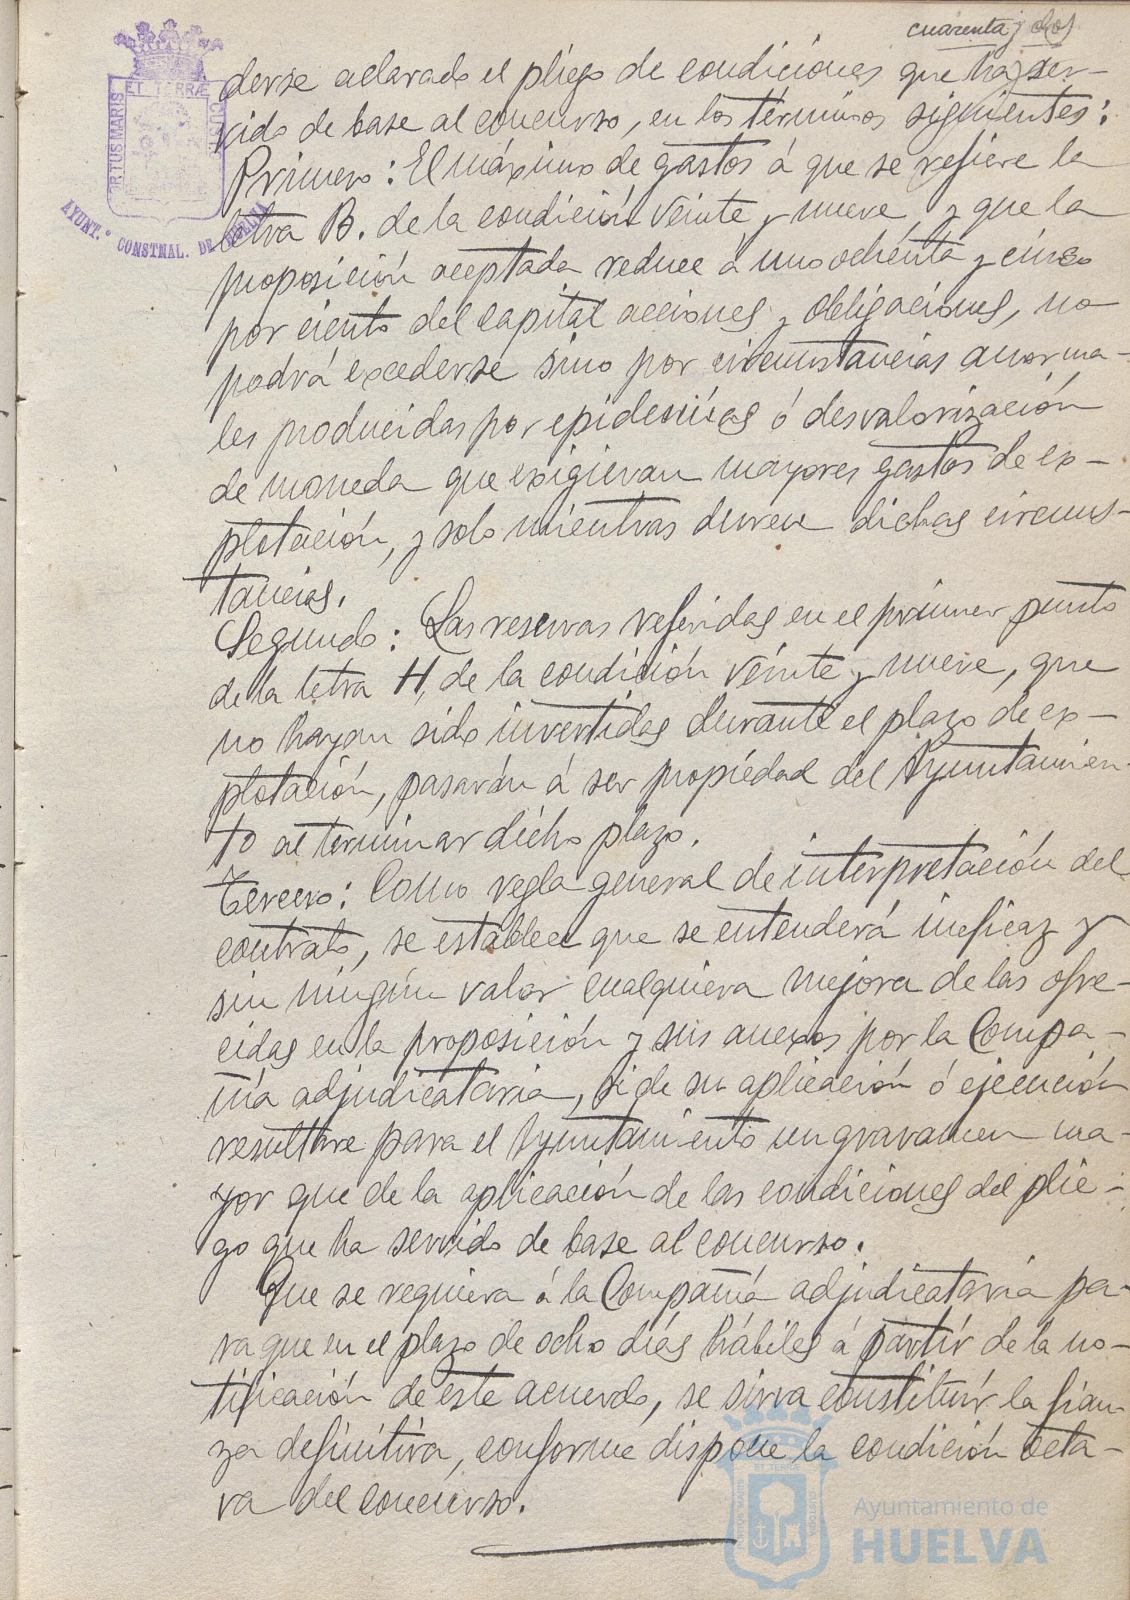 cuarenta y dos
PORTUS MARIS ET TERRÆ CUSTODIA
AYUNT.º CONSTNAL. DE HUELVA
derse aclarado el pliego de condiciones que ha ser-
vido de base al concurso, en los términos siguientes:
Primero: El máximo de gastos á que se refiere la
letra B. de la condición veinte y nueve, y que la
proposición aceptada reduce á uno ochenta y cinco
por ciento del capital acciones y obligaciones, no
podrá excederse sino por circunstancias anorma-
les producidas por epidemias ó desvalorización
de moneda que exigieran mayores gastos de ex-
plotación, y solo mientras duren dichas circuns-
tancias.
Segundo: Las reservas referidas en el primer punto
de la letra H, de la condición veinte y nueve, que
no hayan sido invertidas durante el plazo de ex-
plotación, pasarán á ser propiedad del Ayuntamien-
to al terminar dicho plazo.
Tercero: Como regla general de interpretación del
contrato, se establece que se entenderá ineficaz y
sin ningún valor cualquiera mejora de las ofre-
cidas en la proposición y sus anexos por la Compa-
ñía adjudicataria, si de su aplicación ó ejecución
resultare para el Ayuntamiento un gravamen ma-
yor que de la aplicación de las condiciones del plie-
go que ha servido de base al concurso.
Que se requiera á la Compañía adjudicataria pa-
ra que en el plazo de ocho días hábiles á partir de la no-
tificación de este acuerdo, se sirva constituir la fian-
za definitiva, conforme dispone la condición octa-
va del concurso.
Ayuntamiento de
HUELVA